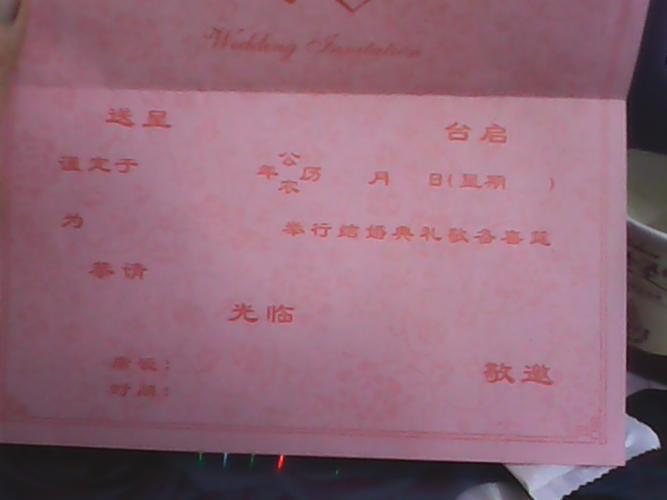 Wedding Invitation
送呈 台启
谨定于 年 公农 历 月 日(星期 )
为 举行结婚典礼敬备喜筵
恭请
光临
席设:
时间:
敬邀